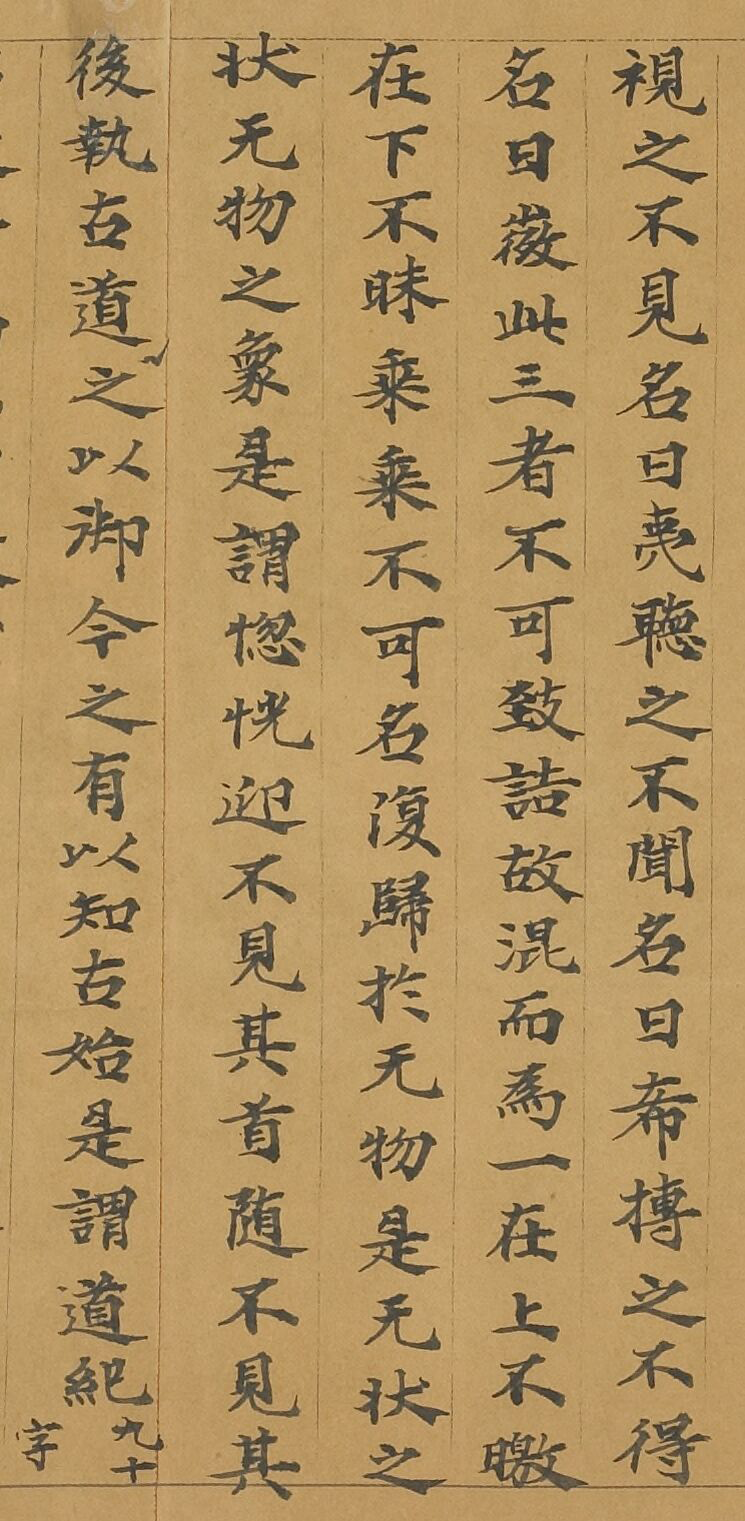 視之不見名曰夷聽之不聞名曰希搏之不得
名曰微此三者不可致詰故混而為一在上不曒
在下不昧乘乘不可名復歸於无物是无状之
状无物之象是謂惚恍迎不見其首随不見其
後執古道之以御今之有以知古始是謂道紀九十
字